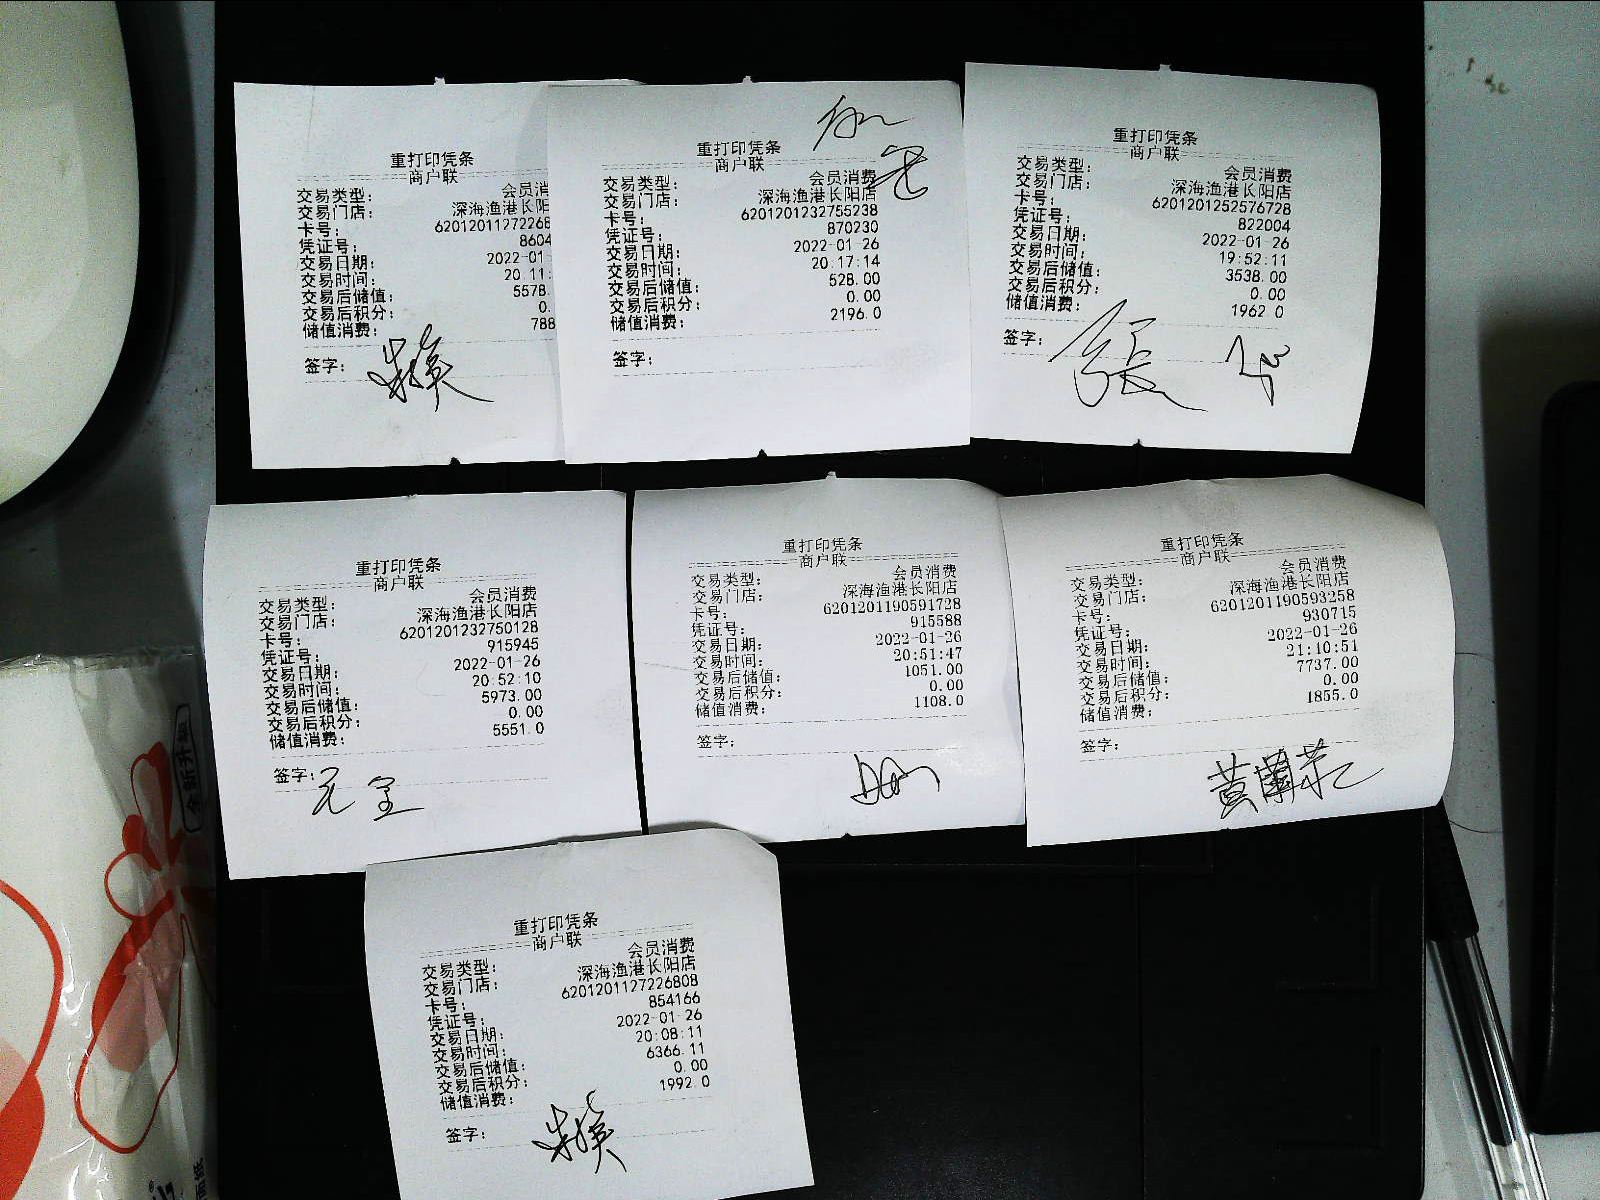 重打印凭条
商户联
交易类型: 会员消
交易门店: 深海渔港长阳
卡号: 62012011272268
凭证号: 8604
交易日期: 2022-01
交易时间: 20:11:
交易后储值: 5578.
交易后积分: 0.
储值消费: 788
签字:
重打印凭条
商户联
交易类型: 会员消费
交易门店: 深海渔港长阳店
卡号: 6201201232755238
凭证号: 870230
交易日期: 2022-01-26
交易时间: 20:17:14
交易后储值: 528.00
交易后积分: 0.00
储值消费: 2196.0
签字:
重打印凭条
商户联
交易类型: 会员消费
交易门店: 深海渔港长阳店
卡号: 6201201252576728
凭证号: 822004
交易日期: 2022-01-26
交易时间: 19:52:11
交易后储值: 3538.00
交易后积分: 0.00
储值消费: 1962.0
签字: 张
重打印凭条
商户联
交易类型: 会员消费
交易门店: 深海渔港长阳店
卡号: 6201201232750128
凭证号: 915945
交易日期: 2022-01-26
交易时间: 20:52:10
交易后储值: 5973.00
交易后积分: 0.00
储值消费: 5551.0
签字: 元宝
重打印凭条
商户联
交易类型: 会员消费
交易门店: 深海渔港长阳店
卡号: 6201201190591728
凭证号: 915588
交易日期: 2022-01-26
交易时间: 20:51:47
交易后储值: 1051.00
交易后积分: 0.00
储值消费: 1108.0
签字:
重打印凭条
商户联
交易类型: 会员消费
交易门店: 深海渔港长阳店
卡号: 6201201190593258
凭证号: 930715
交易日期: 2022-01-26
交易时间: 21:10:51
交易后储值: 7737.00
交易后积分: 0.00
储值消费: 1855.0
签字:
黄
重打印凭条
商户联
交易类型: 会员消费
交易门店: 深海渔港长阳店
卡号: 6201201127226808
凭证号: 854166
交易日期: 2022-01-26
交易时间: 20:08:11
交易后储值: 6366.11
交易后积分: 0.00
储值消费: 1992.0
签字:
全新升级